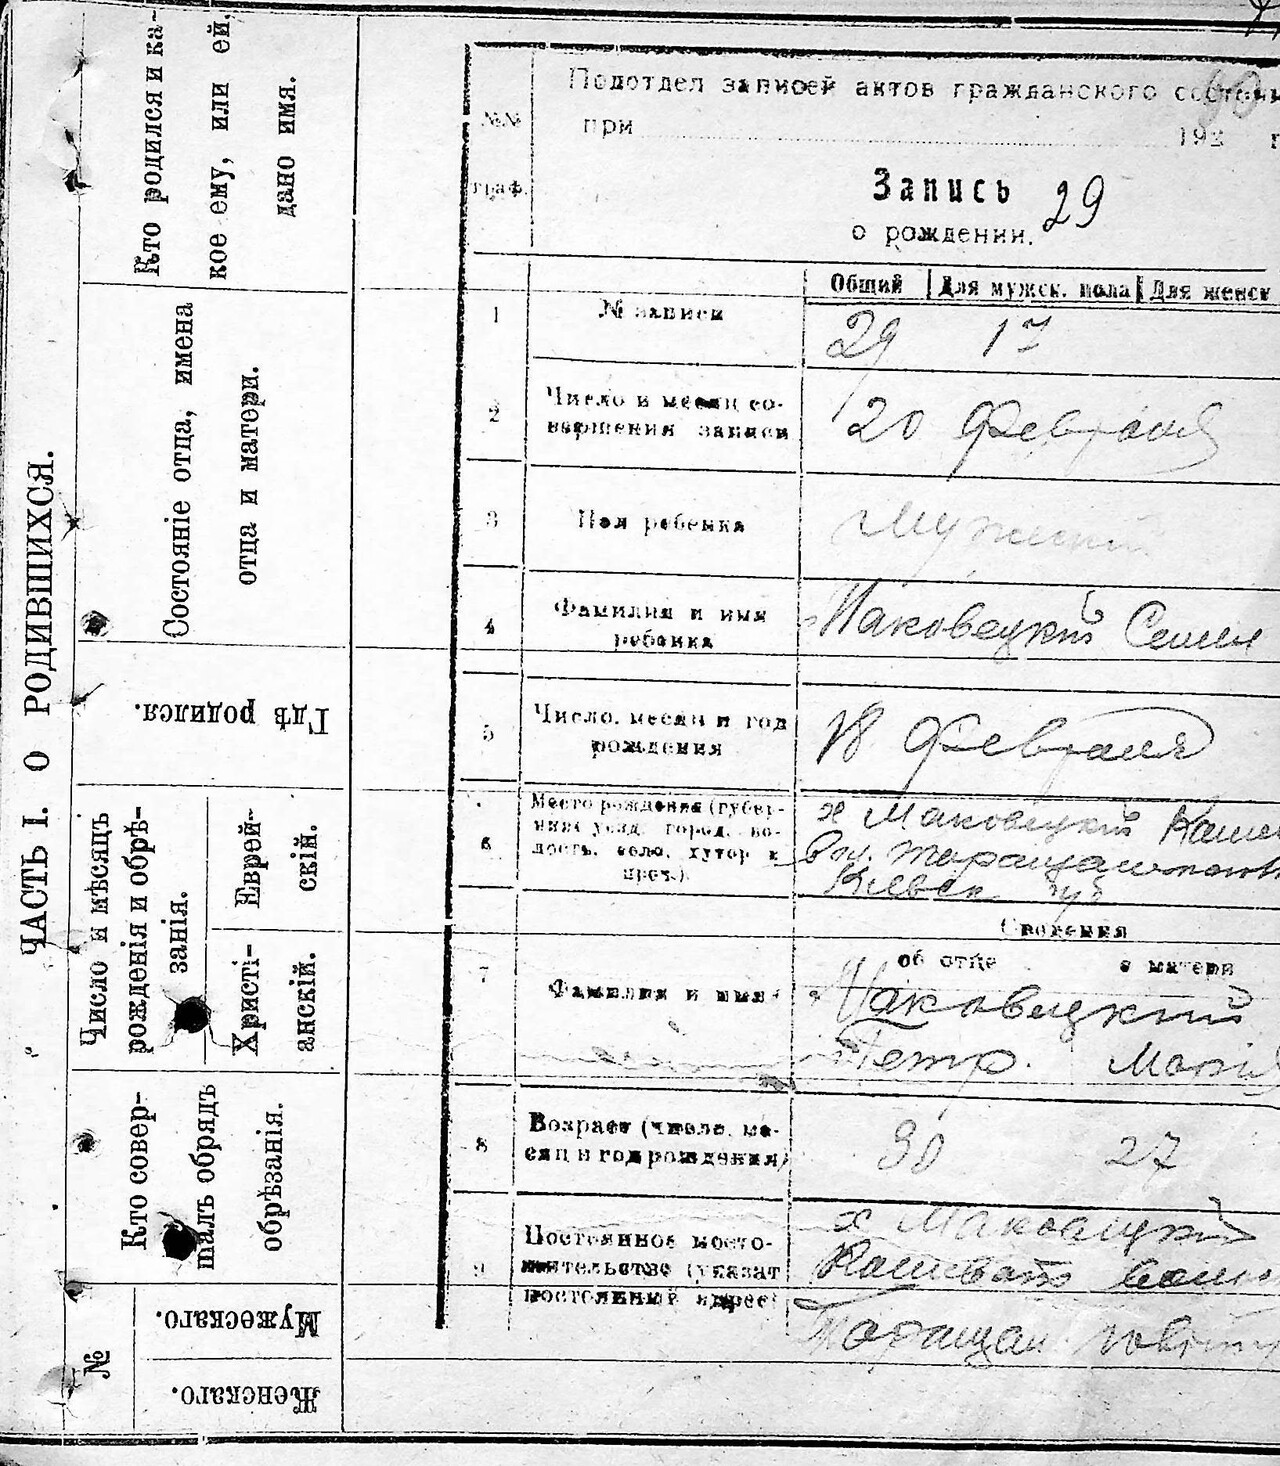 ЧАСТЬ I. О РОДИВШИХСЯ.
Кто родился и ка-
кое ему, или ей,
дано имя.
Состояніе отца, имена
отца и матери.
Гдѣ родился.
Число и мѣсяцъ
рожденія и обрѣ-
занія.
Еврей-
скій.
Христі-
анскій.
Кто совер-
шалъ обрядъ
обрѣзанія.
№
Мужескаго.
Женскаго.
№№
граф.
Подотдел записей актов гражданского
при 192 г
Запись 29
о рождении.
Общий Для мужск. пола Для женск
1 № записи 29 17
2 Число и месяц со-
вершения записи 20 Февраля
3 Пол ребенка Мужской
4 Фамилия и имя
ребенка Маковецкий Семен
5 Число, месяц и год
рождения 18 Февраля
6 Место рождения (губер-
ния, уезд, город, во-
лость, село, хутор и
проч.)
х Маковецкий
Киевск губ
Сведения
об отце о матери
7 Фамилия и имя Маковецкий
Петр. Мария
8 Возраст (число, ме-
сяц и год рождения) 30 27
9 Постоянное место-
жительство (указат
постоянный адрес)
х Маковецкий